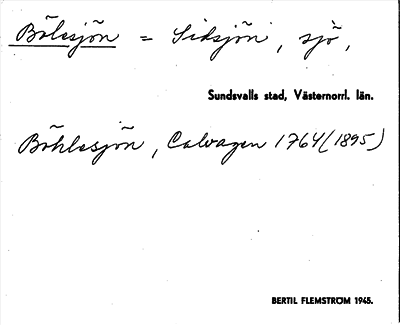 Bölesjön = Sidsjön, sjö,
Sundsvalls stad, Västernorrl. län.
Böhlesjön, Calwagen 1764 (1895)
BERTIL FLEMSTRÖM 1945.